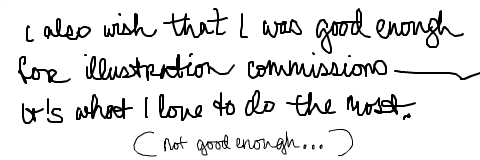 I also wish that I was good enough
for illustration commissions
It's what I love to do the most.
(not good enough...)